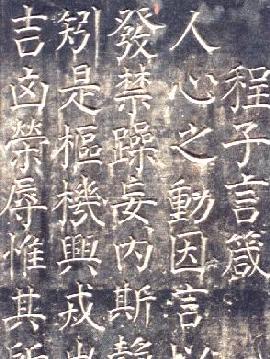 程子言箴
人心之動因言以
發禁躁妄內斯靜
矧是樞機興戎出
吉凶榮辱惟其所